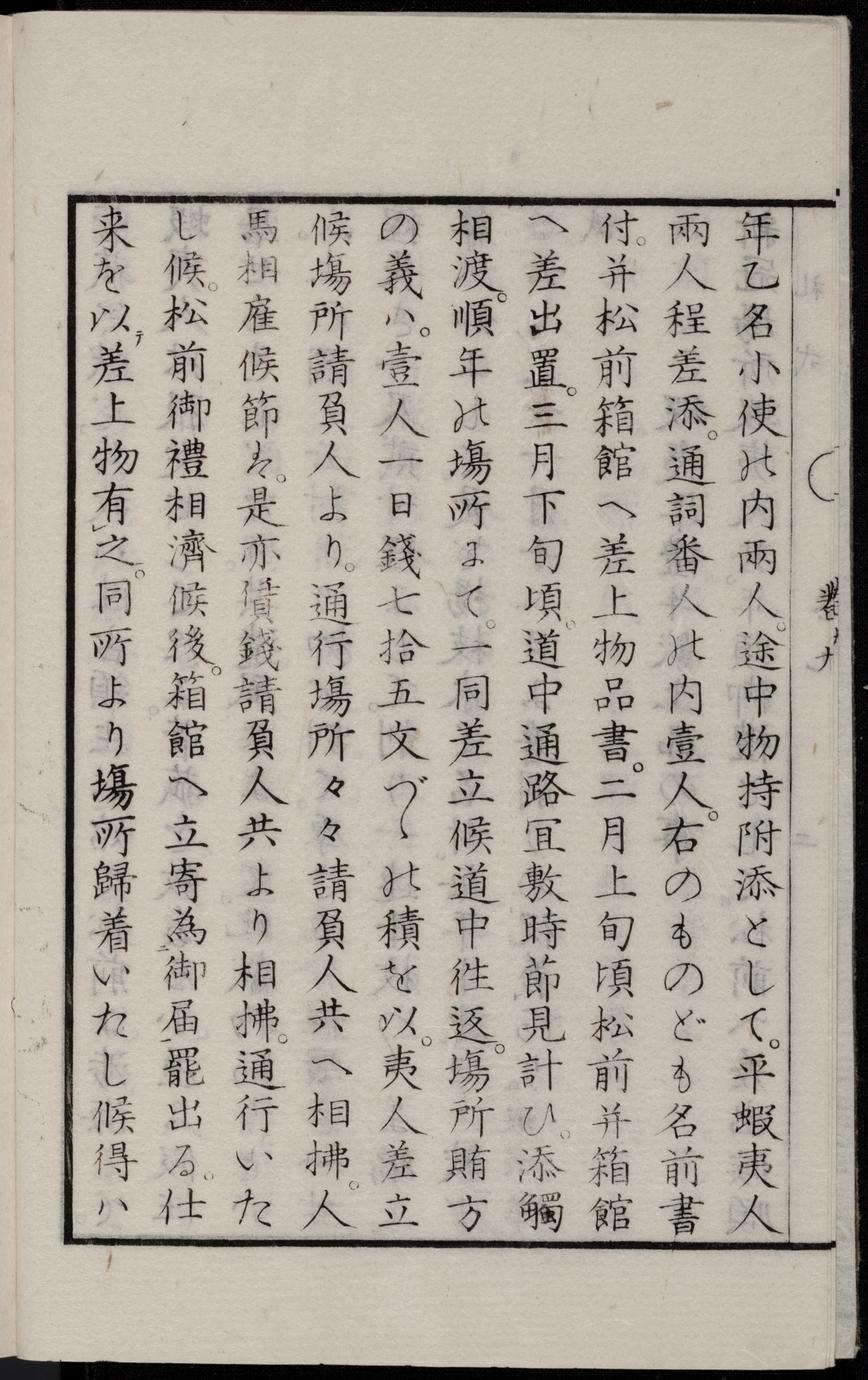 年乙名小使の内兩人。途中物持附添として。平蝦夷人
兩人程差添。通詞番人の内壹人。右のものども名前書
付。并松前箱館へ差上物品書。二月上旬頃松前并箱館
へ差出置。三月下旬頃。道中通路冝敷時節見計ひ。添觸
相渡。順年の塲所にて。一同差立候道中徃返。塲所賄方
の義ハ。壹人一日錢七拾五文づゝの積を以。夷人差立
候塲所請負人より。通行塲所々々請負人共へ相拂。人
馬相雇候節は。是亦債錢請負人共より相拂。通行いた
し候。松前御禮相濟候後。箱館へ立寄為御届罷出る。仕
来を以テ差上物有之。同所より塲所歸着いたし候得ハ